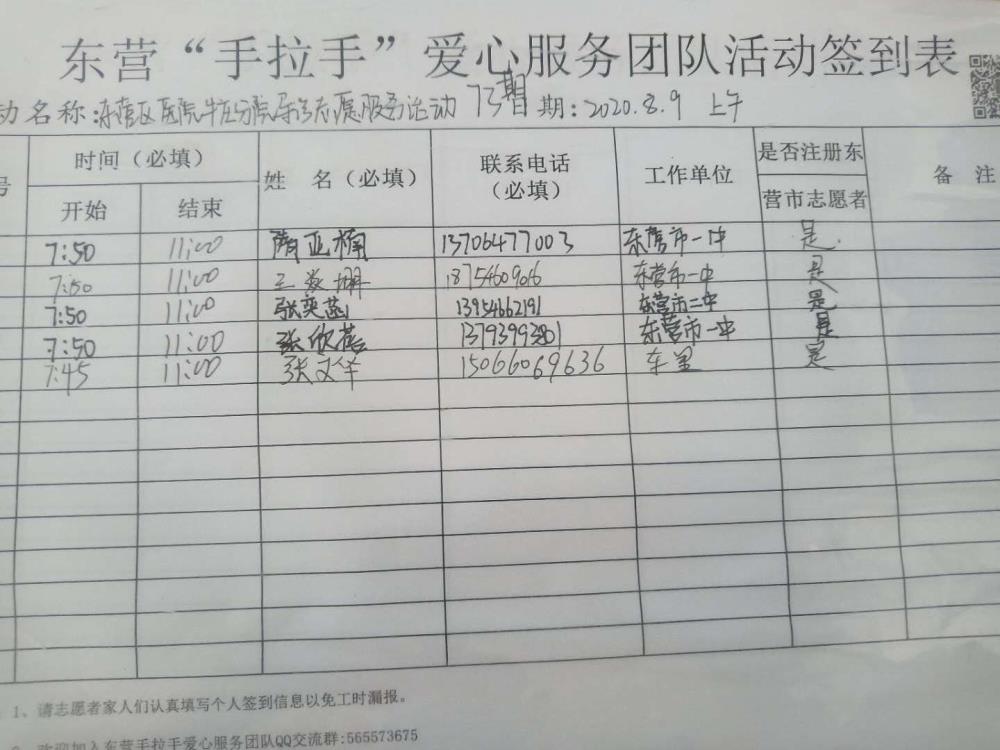 东营“手拉手”爱心服务团队活动签到表
动名称:东营区医院牛庄分院导诊志愿服务活动 73期 日期:2020.8.9 上午
号 时间(必填) 姓 名(必填) 联系电话(必填) 工作单位 是否注册东营市志愿者 备 注
开始 结束
7:50 11:00 亚楠 13706477003 东营市一中 是
7:50 11:00 王 东营市一中 是
7:50 11:00 张奕菡 13954662191 东营市二中 是
7:50 11:00 张欣蓓 东营市一中 是
7:45 11:00 张文华 15066069636 是
1、请志愿者家人们认真填写个人签到信息以免工时漏报。
欢迎加入东营手拉手爱心服务团队QQ交流群:565573675